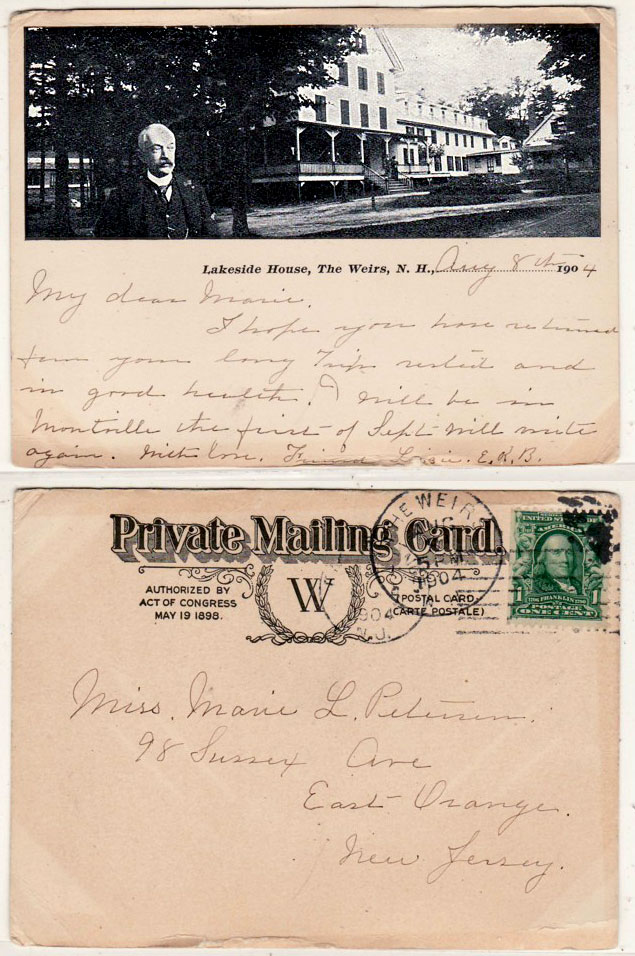 Lakeside House, The Weirs, N. H., Aug 8th 1904
My dear Marie.
I hope you have returned
from your long Trip rested and
in good health. I will be in
Montville the first of Sept will write
again. With love. Friend Lizzie. E.R.B.
Private Mailing Card.
AUTHORIZED BY
ACT OF CONGRESS
MAY 19 1898.
W
(POSTAL CARD.
(CARTE POSTALE)
THE WEIRS
5 PM
1904
1904
N.J.
UNITED STATES
1 FRANKLIN 1
POSTAGE
ONE CENT
Miss. Marie L. Petersen.
98 Sussex Ave
East Orange.
New Jersey.